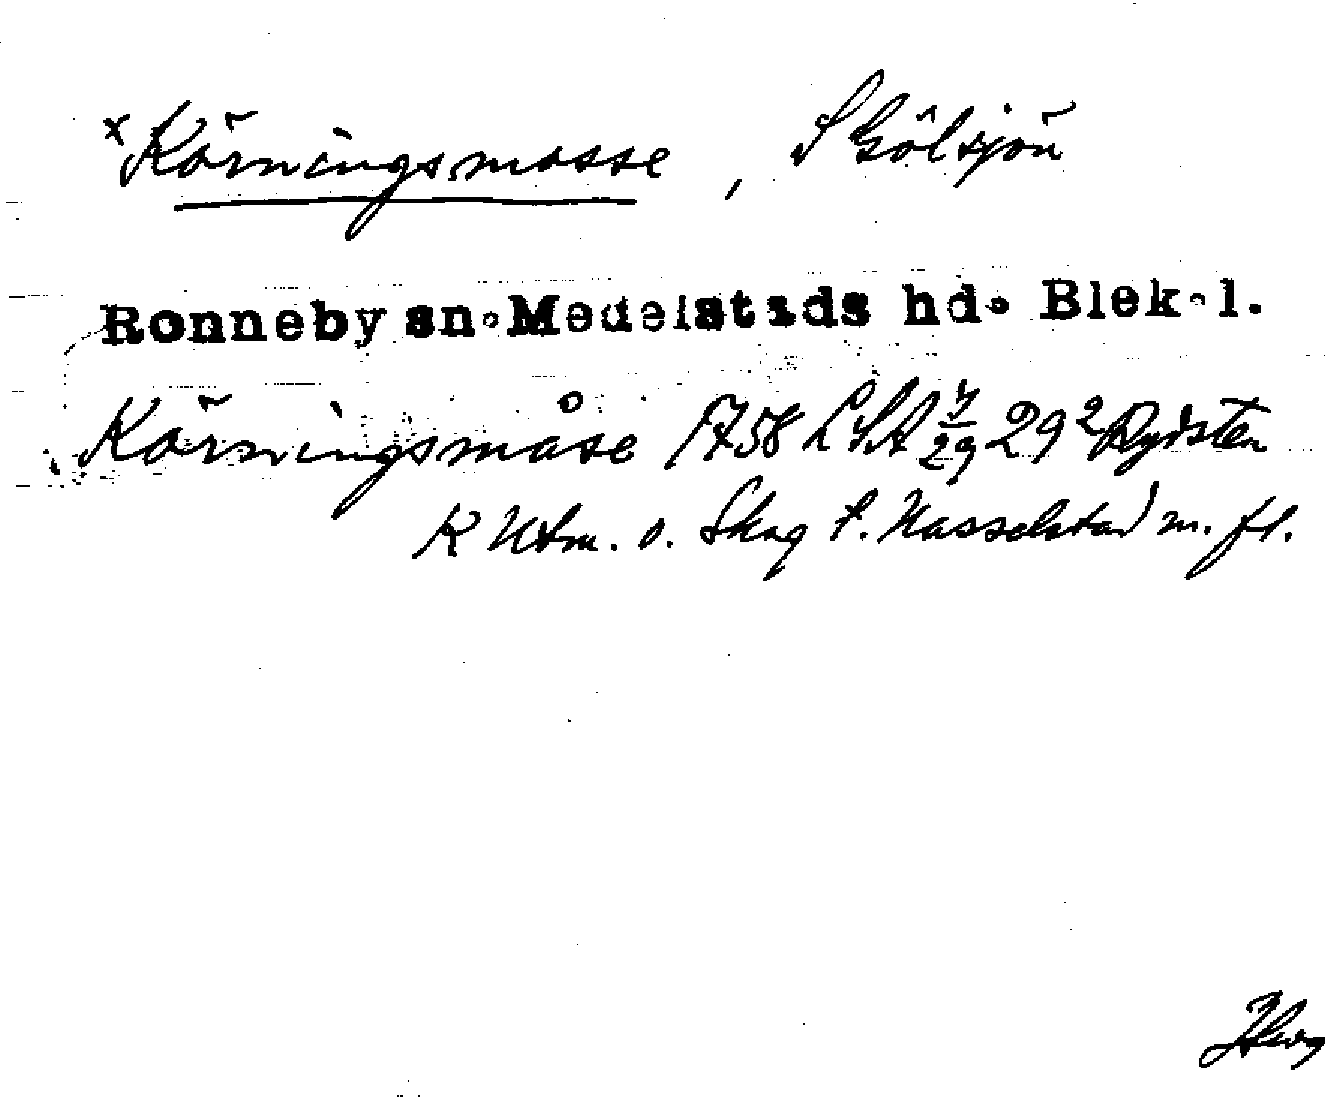 x Körningsmosse, S Gölsjön
Ronneby sn. Medelstads hd. Blek. l.
Körningsmåse 1758 LSA 7/29 29² Rydsten
K Utm. o. Skog t. Hasselstad m. fl.